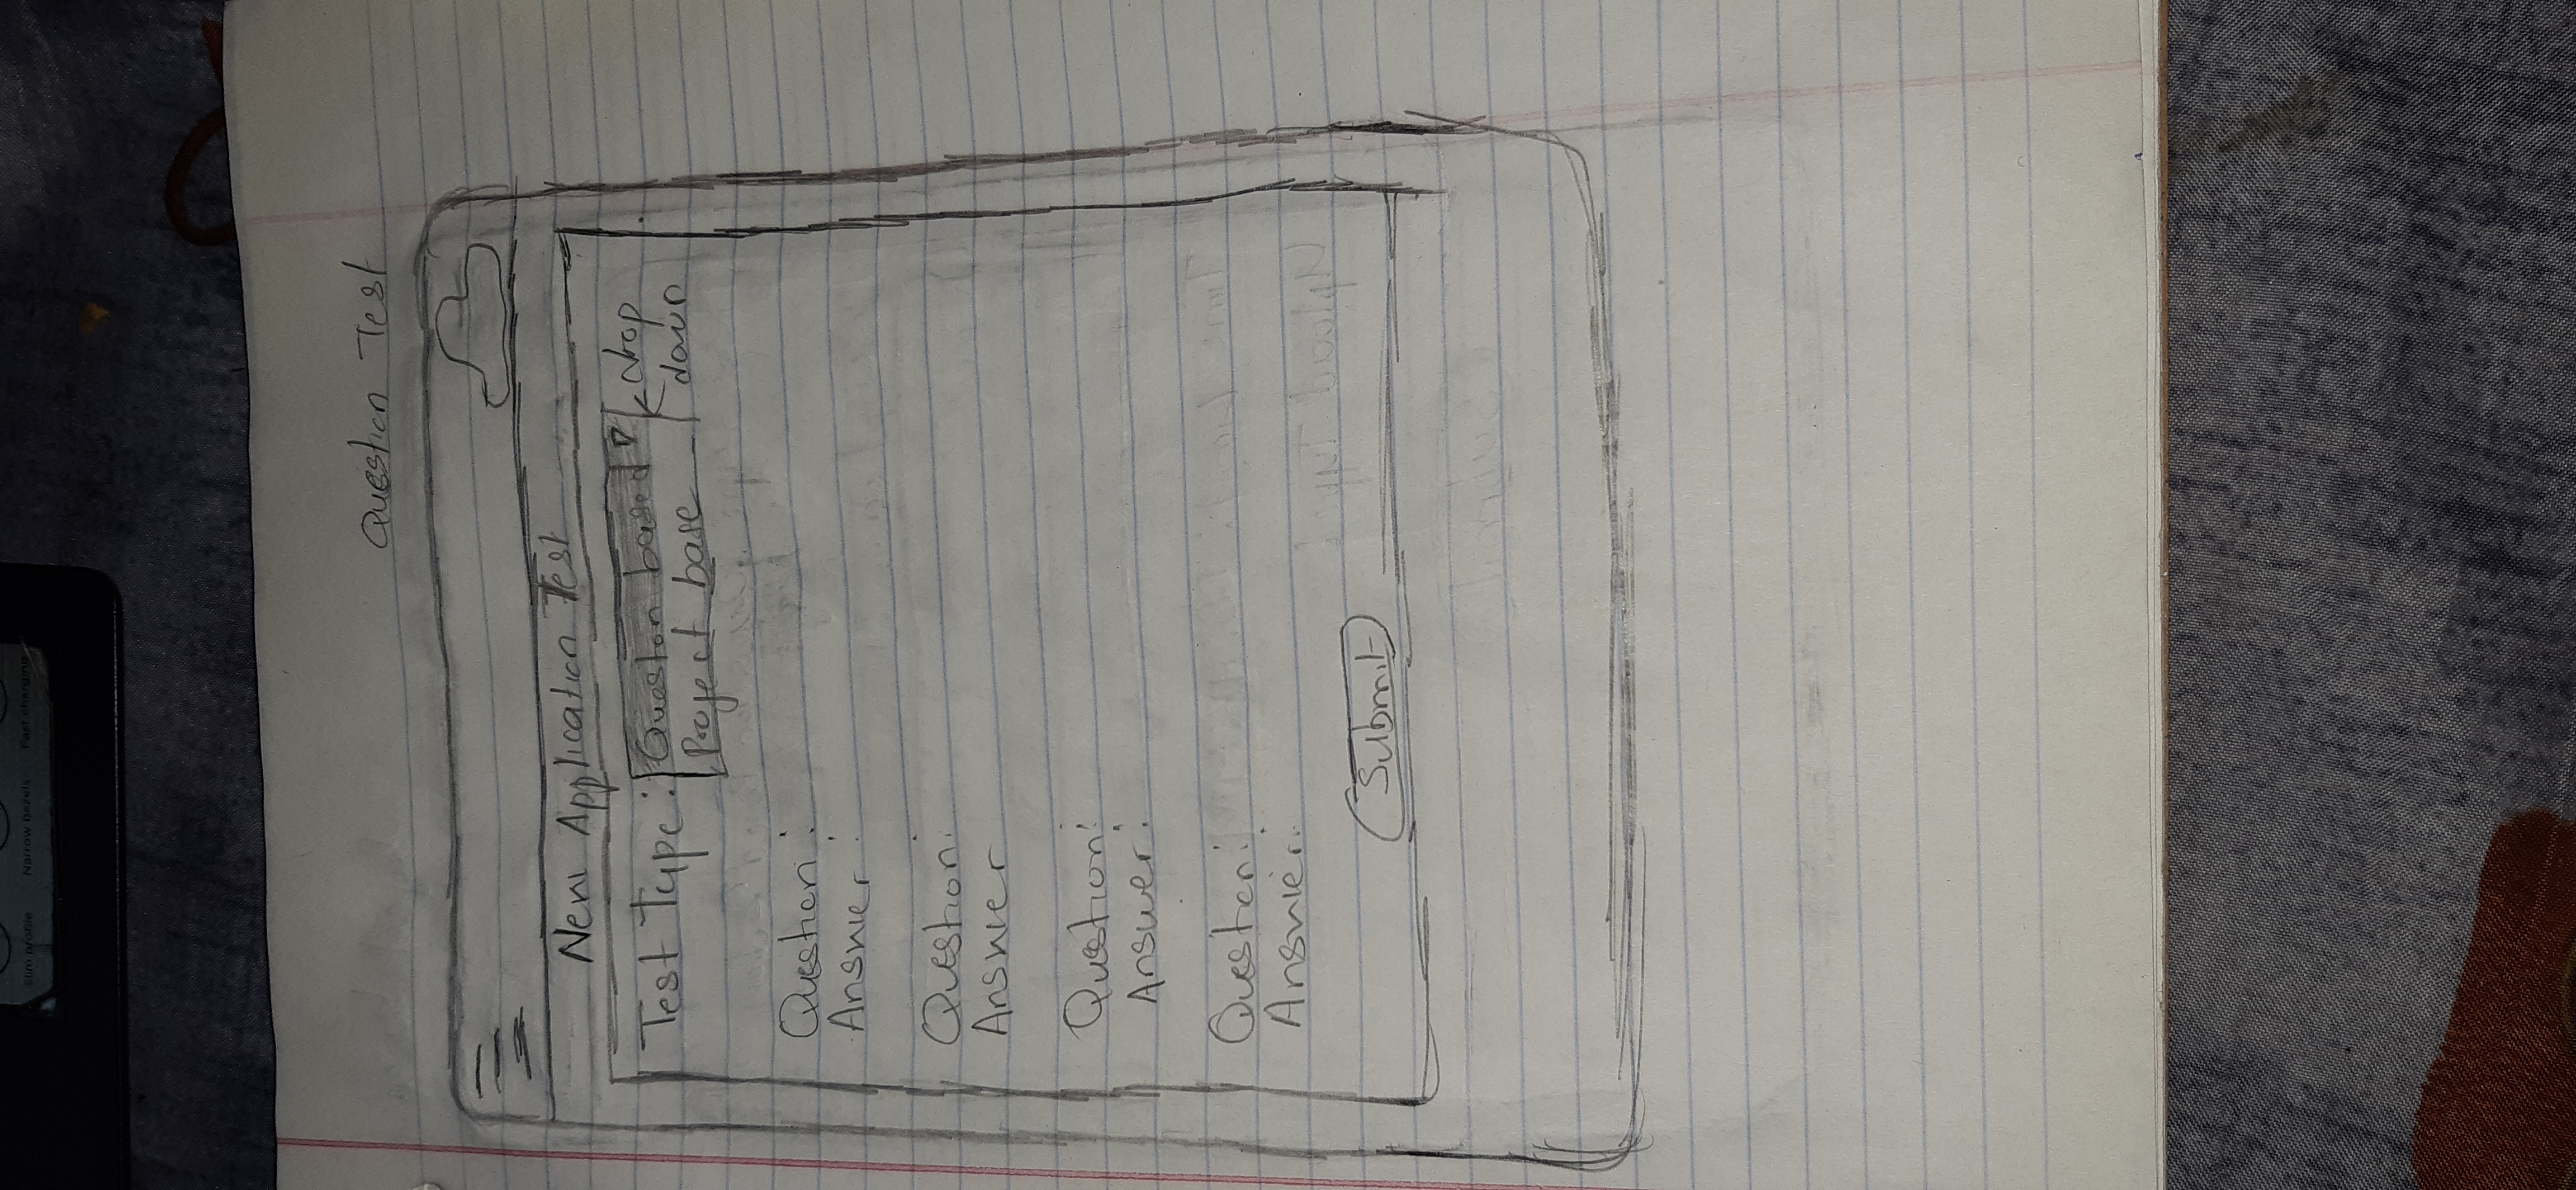 Slim profile Narrow bezels Fast charging
Question Test
New Application Test
Test Type: Question based
drop
Project base
down
Question:
Answer:
Question:
Answer
Question:
Answer:
Question:
Answer:
Upload Type
Submit
Submit